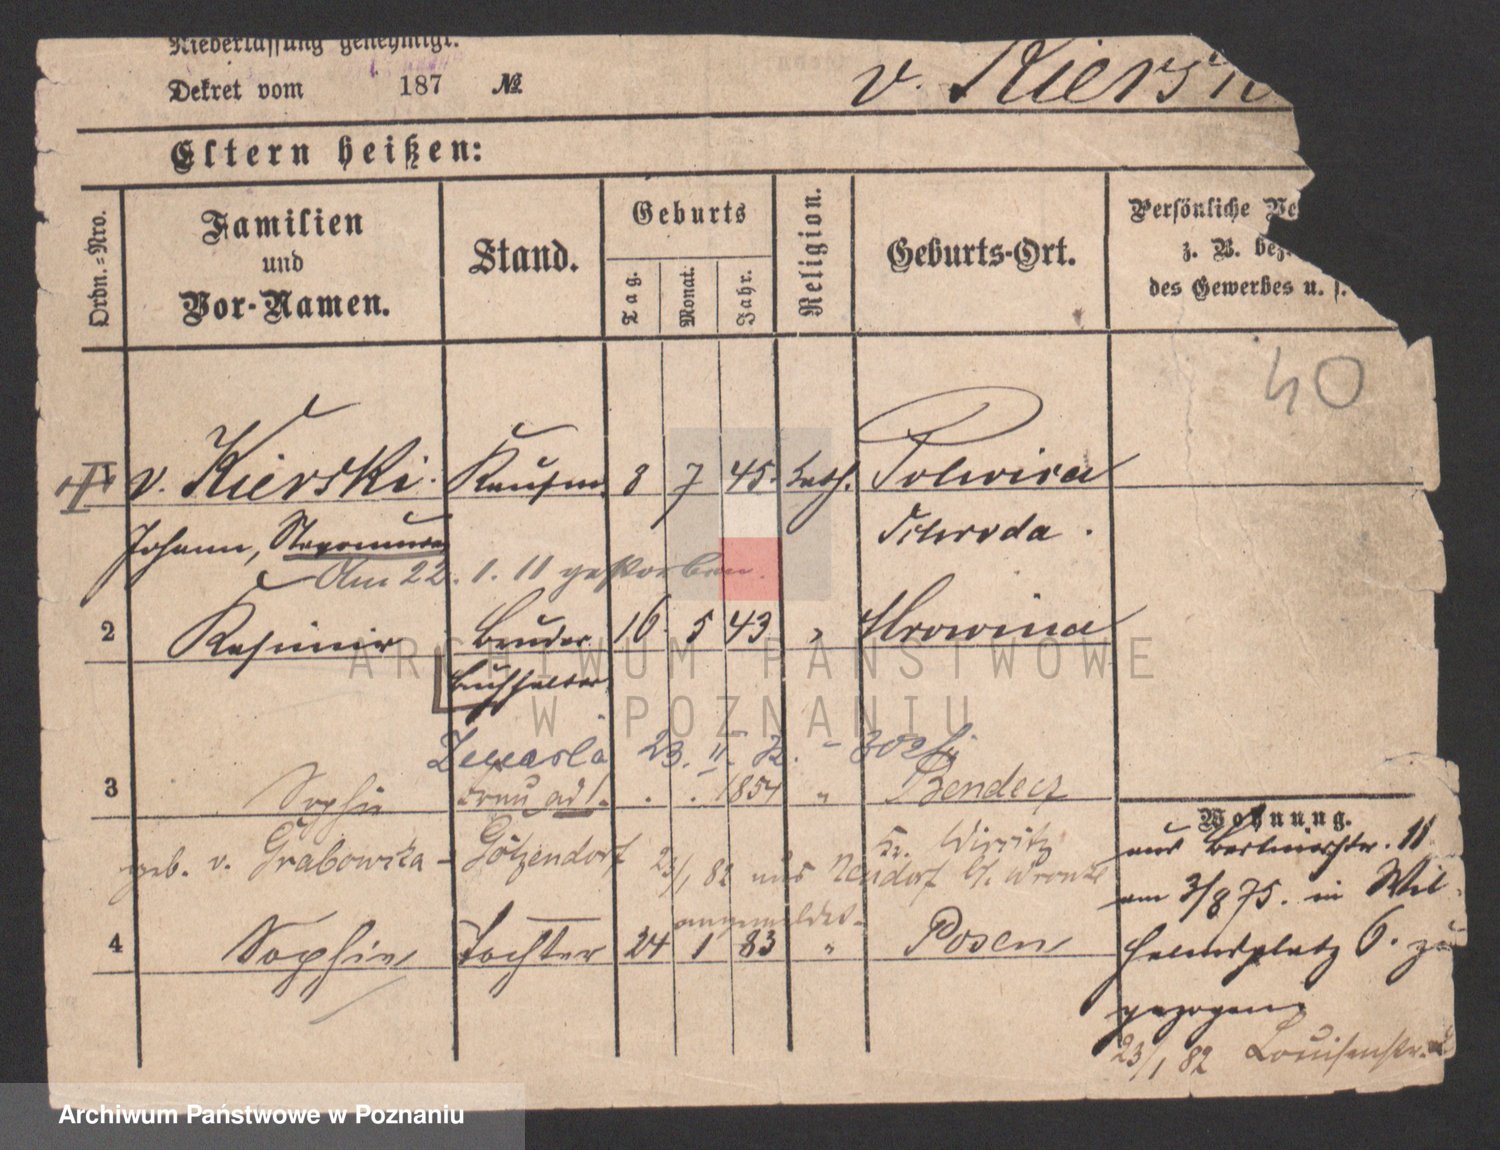 Niederlassung genehmigt.
Dekret vom 187 №
v. Kiersk
Eltern heißen:
Ordn.=Nro.
Familien
und
Vor-Namen.
Stand.
Geburts
Tag.
Monat.
Jahr.
Religion.
Geburts-Ort.
Persönliche Ve
z. B. bez.
des Gewerbes u. s.
40
v. Kierski. Kaufm. 8 7 45. kath.
Johann,
Schroda.
Am 22. 1. 11 gestorben.
2 Kasimir Bruder 16. 5 43 "
Buchhalter
23. II.
3 Sophie Frau ad 1. . . 1854 " Bendecz
Kr. Wirsitz
geb. v. Grabowska - Götzendorf 23/1 82 aus Neudorf b/. Wronke
angemeldet
4 Sophie Tochter 24 1 83 " Posen
Wohnung.
aus Berlinerstr. 11
am 3/8 75. in Wil-
helmsplatz 6. zu
gezogen
23/1 82 Louisenstr.
ARCHIWUM PAŃSTWOWE
W POZNANIU
Archiwum Państwowe w Poznaniu